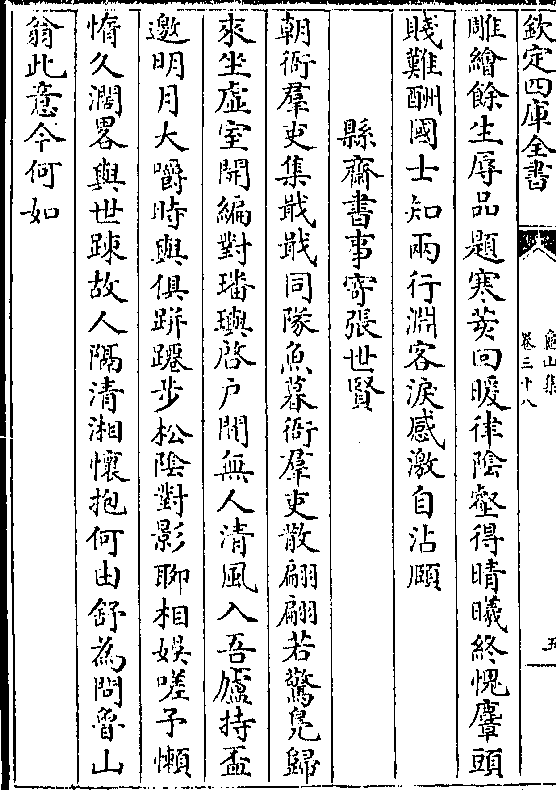 欽定四庫全書
龜山集
卷三十八
五
雕繪餘生辱品題寒荄回暖律陰壑得晴曦終愧麞頭
賤難酬國士知兩行淵客淚感激自沾頤
縣齋書事寄張世賢
朝衙羣吏集戢戢同隊魚暮衙羣吏散翩翩若驚鳧歸
來坐虛室開編對璠璵啓户闃無人清風入吾廬持盃
邀明月大嚼時與俱跰𨇤步松陰對影聊相娱嗟予懶
惰久濶畧與世踈故人隔清湘懷抱何由舒為問魯山
翁此意今何如